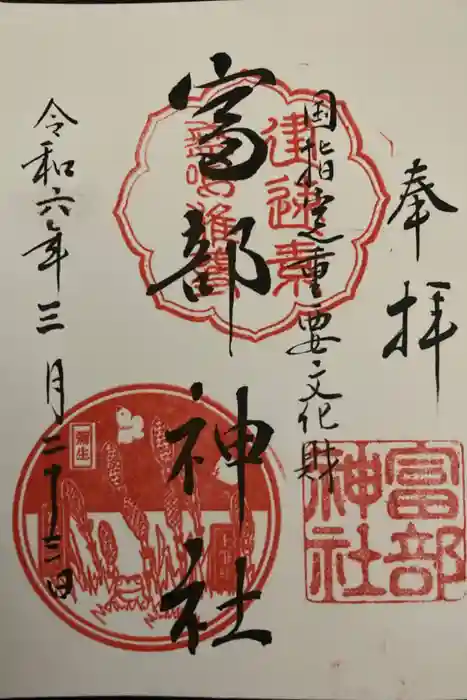 奉拝
国指定重要文化財
富部神社
令和六年三月二十三日
富部
神社
弥生